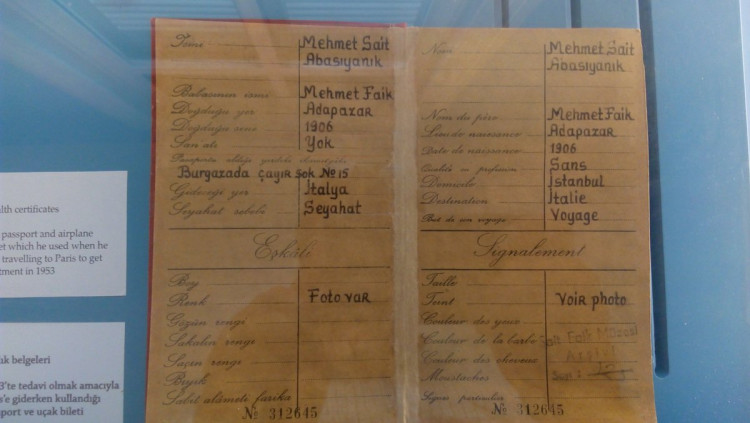 İsmi Mehmet Sait
Abasıyanık
Babasının ismi Mehmet Faik
Doğduğu yer Adapazar
Doğduğu sene 1906
San'atı Yok
Burgazada çayır sok № 15
Gideceği yer İtalya
Seyahat sebebi Seyahat
Eşkâli
Boy
Renk Foto var
Gözün rengi
Sakalın rengi
Saçın rengi
Bıyık
Sabit alâmeti farika
№ 312645
Nom Mehmet Sait
Abasıyanık
Nom du père Mehmet Faik
Lieu de naissance Adapazar
Date de naissance 1906
Qualité ou profession Sans
Domicile İstanbul
Destination İtalie
But de son voyage Voyage
Signalement
Taille
Teint Voir photo
Couleur des yeux
Couleur de la barbe
Couleur des cheveux
Moustaches
Signes particuliers
Sait Faik Müzesi
№ 312645
lth certificates
passport and airplane
et which he used when he
travelling to Paris to get
tment in 1953
ık belgeleri
3'te tedavi olmak amacıyla
s'e giderken kullandığı
port ve uçak bileti